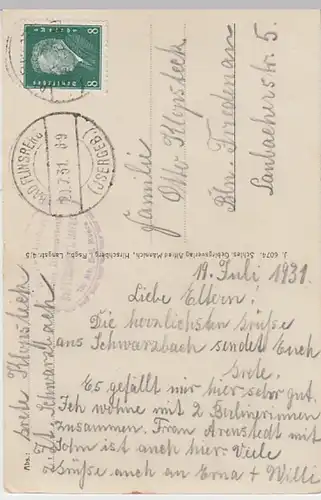 Deutsches Reich
8 8
BAD FLINSBERG
20.7.31. 8-9
(ISERGEB.)
Familie
Otto Klopsteck
Bln. Friedenau
Laubacherstr. 5.
J. 6074. Schles. Gebirgsverlag Alfred Mannich, Hirschberg i. Rsgb., Langstr. 4/5
19. Juli 1931.
Liebe Eltern!
Die herzlichsten Grüße
aus Schwarzbach sendet Euch
Grete.
Es gefällt mir hier sehr gut.
Ich wohne mit 2 Berlinerinnen
zusammen. Frau Arenstedt mit
Sohn ist auch hier. Viele
Grüße auch an Erna + Willi
Abs.: Grete Klopsteck
Schwarzbach